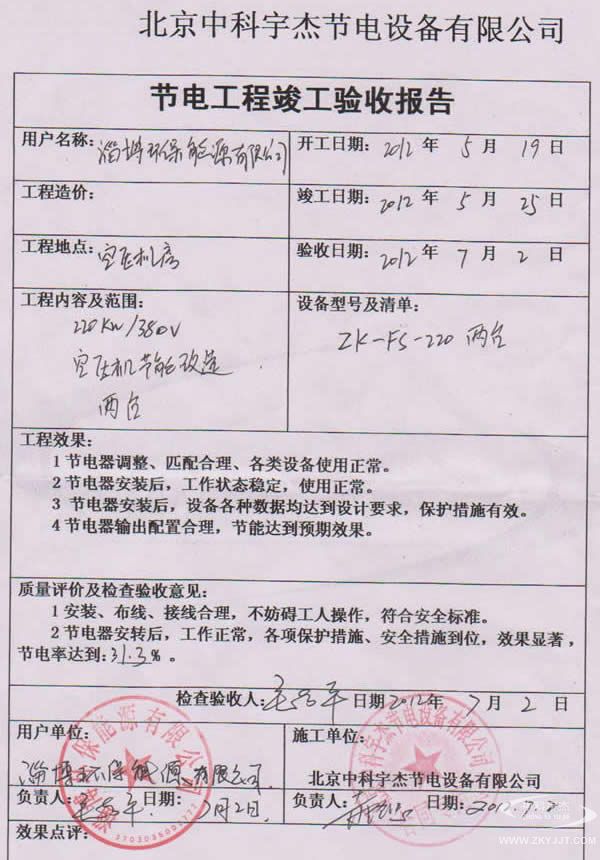 北京中科宇杰节电设备有限公司
节电工程竣工验收报告
用户名称：淄博环保能源有限公司 开工日期：2012 年 5 月 19 日
工程造价： 竣工日期：2012 年 5 月 25 日
工程地点：空压机房 验收日期：2012 年 7 月 2 日
工程内容及范围： 设备型号及清单：
220KW/380V
ZK-FS-220 两台
空压机节能改造
两台
工程效果：
1 节电器调整、匹配合理、各类设备使用正常。
2 节电器安装后，工作状态稳定，使用正常。
3 节电器安装后，设备各种数据均达到设计要求，保护措施有效。
4 节电器输出配置合理，节能达到预期效果。
质量评价及检查验收意见：
1 安装、布线、接线合理，不妨碍工人操作，符合安全标准。
2 节电器安转后，工作正常，各项保护措施、安全措施到位，效果显著，
节电率达到：31.3%。
检查验收人： 日期 2012年 7 月 2 日
用户单位： 施工单位：
淄博环保能源有限公司 北京中科宇杰节电设备有限公司
负责人： 日期： 7月2日 负责人： 日期：
效果点评：
WWW.ZKYJJT.COM